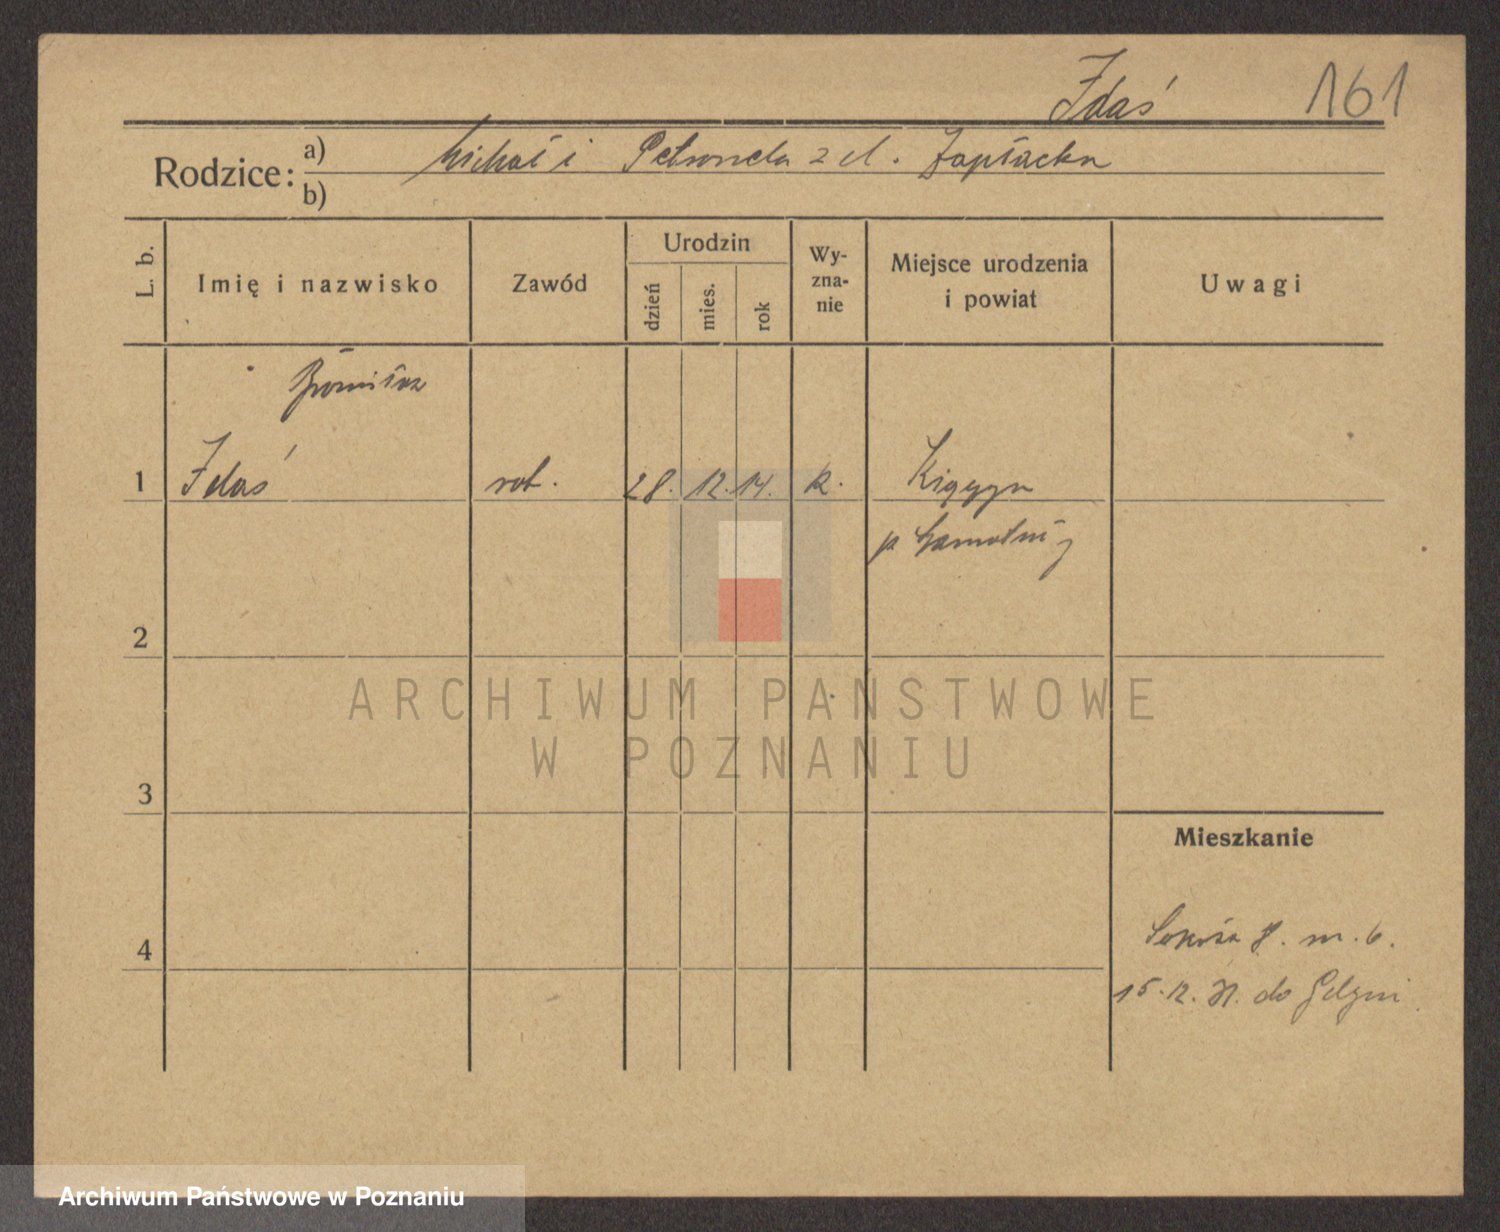 Idaś 161
Rodzice: a) Michał i Petronela z d. Zapłacka
b)
L. b. Imię i nazwisko Zawód Urodzin dzień mies. rok Wyzna-nie Miejsce urodzenia i powiat Uwagi
Bronisław
1 Idaś rob. 28. 12. 14. k. Kiączyn
p Szamotuły
2
ARCHIWUM PAŃSTWOWE
W POZNANIU
3
Mieszkanie
4 8. m. 6.
15. 12. do Gdyni
Archiwum Państwowe w Poznaniu